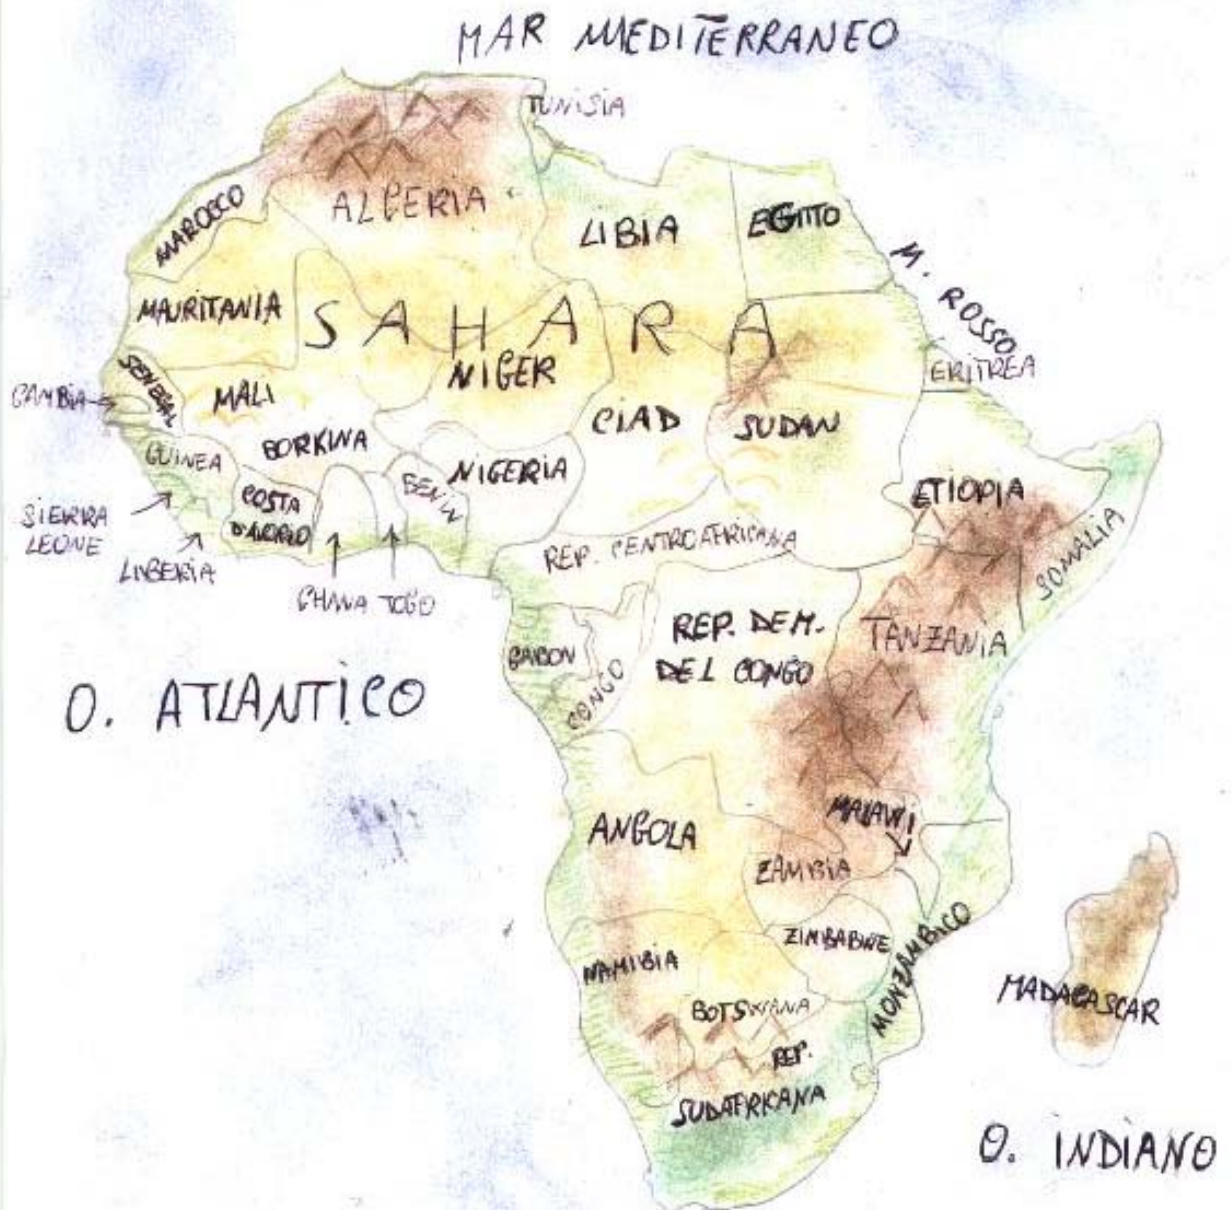 MAR MEDITERRANEO
TUNISIA
MAROCCO
ALGERIA
LIBIA
EGITTO
M. ROSSO
MAURITANIA
SAHARA
ERITREA
SENEGAL
GAMBIA
MALI
NIGER
CIAD
SUDAN
GUINEA
BORKINA
BENIN
NIGERIA
ETIOPIA
SIERRA
LEONE
COSTA
D'AVORIO
LIBERIA
GHANA
TOGO
REP. CENTROAFRICANA
SOMALIA
GABON
CONGO
REP. DEM.
DEL CONGO
TANZANIA
O. ATLANTICO
ANGOLA
MALAWI
ZAMBIA
ZIMBABWE
NAMIBIA
MONZAMBICO
MADAGASCAR
BOTSWANA
REP.
SUDAFRICANA
O. INDIANO